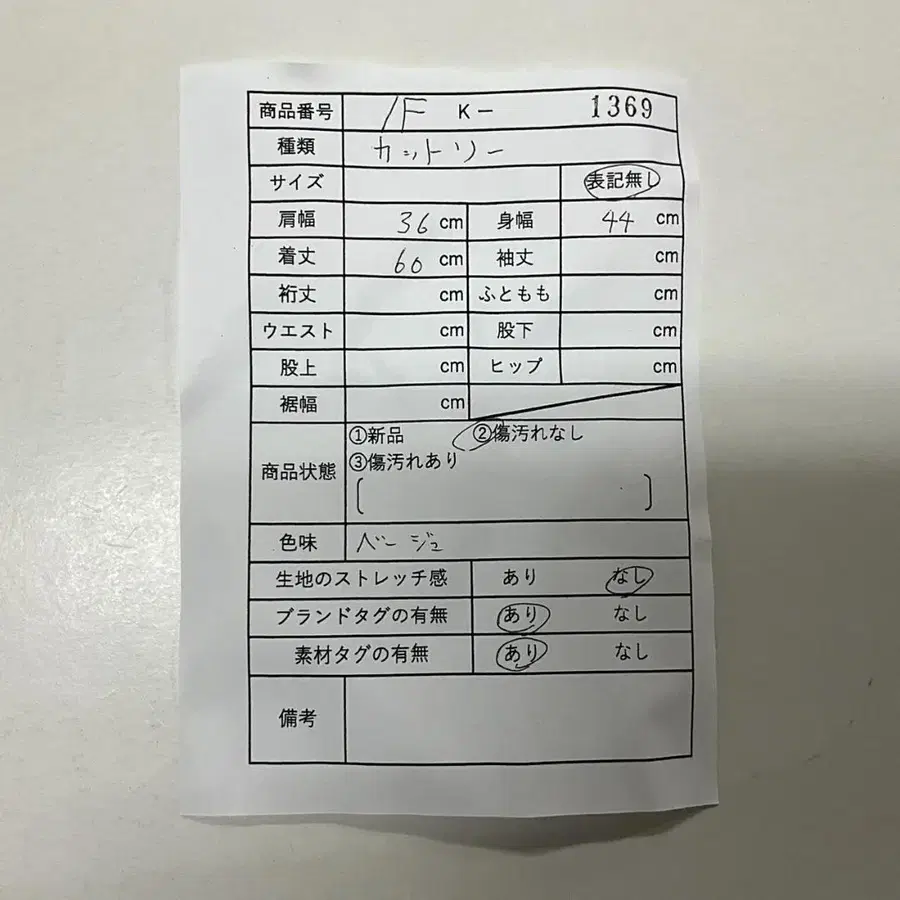 商品番号 1F K－ 1369
種類 カットソー
サイズ 表記無し
肩幅 36 cm 身幅 44 cm
着丈 60 cm 袖丈 cm
裄丈 cm ふともも cm
ウエスト cm 股下 cm
股上 cm ヒップ cm
裾幅 cm
商品状態 ①新品 ②傷汚れなし
③傷汚れあり
[ ]
色味 ベージュ
生地のストレッチ感 あり なし
ブランドタグの有無 あり なし
素材タグの有無 あり なし
備考